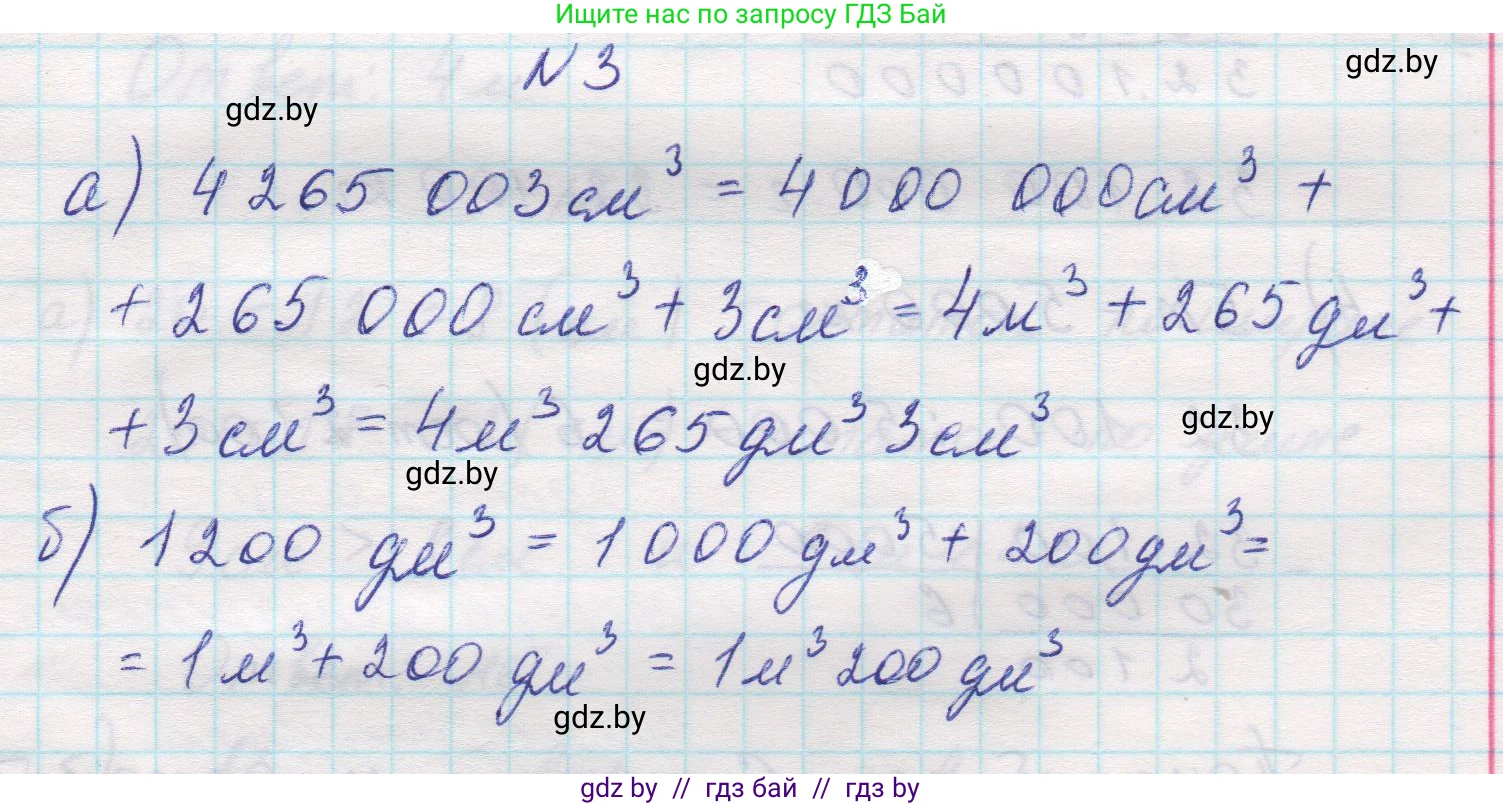 Ищите нас по запросу ГДЗ Бай
N 3
gdz.by
gdz.by
а) 4 265 003 см³ = 4 000 000 см³ +
+ 265 000 см³ + 3 см³ = 4 м³ + 265 дм³ +
gdz.by
+ 3 см³ = 4 м³ 265 дм³ 3 см³
gdz.by
gdz.by
б) 1 200 дм³ = 1 000 дм³ + 200 дм³ =
= 1 м³ + 200 дм³ = 1 м³ 200 дм³
gdz.by
gdz by // гдз бай // гдз by